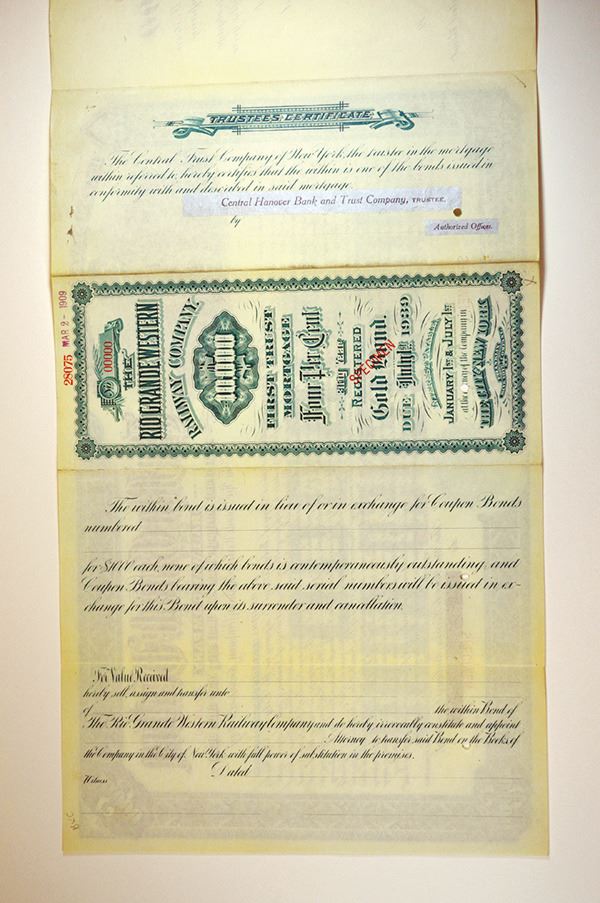 TRUSTEE'S CERTIFICATE.
The Central Trust Company of New York, the trustee in the mortgage
within referred to, hereby certifies that the within is one of the bonds issued in
conformity with and described in said mortgage.
Central Hanover Bank and Trust Company, TRUSTEE.
by
Authorized Officer.
28075 MAR 2 - 1909
00000
THE
RIO GRANDE WESTERN
RAILWAY COMPANY.
FIRST TRUST
MORTGAGE
Four Per Cent
Fifty Year
REGISTERED
SPECIMEN
Gold Bond.
DUE July 1st 1939
JANUARY 1st & JULY 1st
at the Agency of the Company in
THE CITY OF NEW YORK
The within bond is issued in lieu of or in exchange for Coupon Bonds
numbered
for $1000 each, none of which bonds is contemporaneously outstanding, and
Coupon Bonds bearing the above said serial numbers will be issued in ex-
change for this Bond upon its surrender and cancellation.
For Value Received
hereby sell, assign and transfer unto
of the within Bond of
The Rio Grande Western Railway Company and do hereby irrevocably constitute and appoint
Attorney to transfer said Bond on the Books of
the Company in the City of New York with full power of substitution in the premises.
Dated
Witness